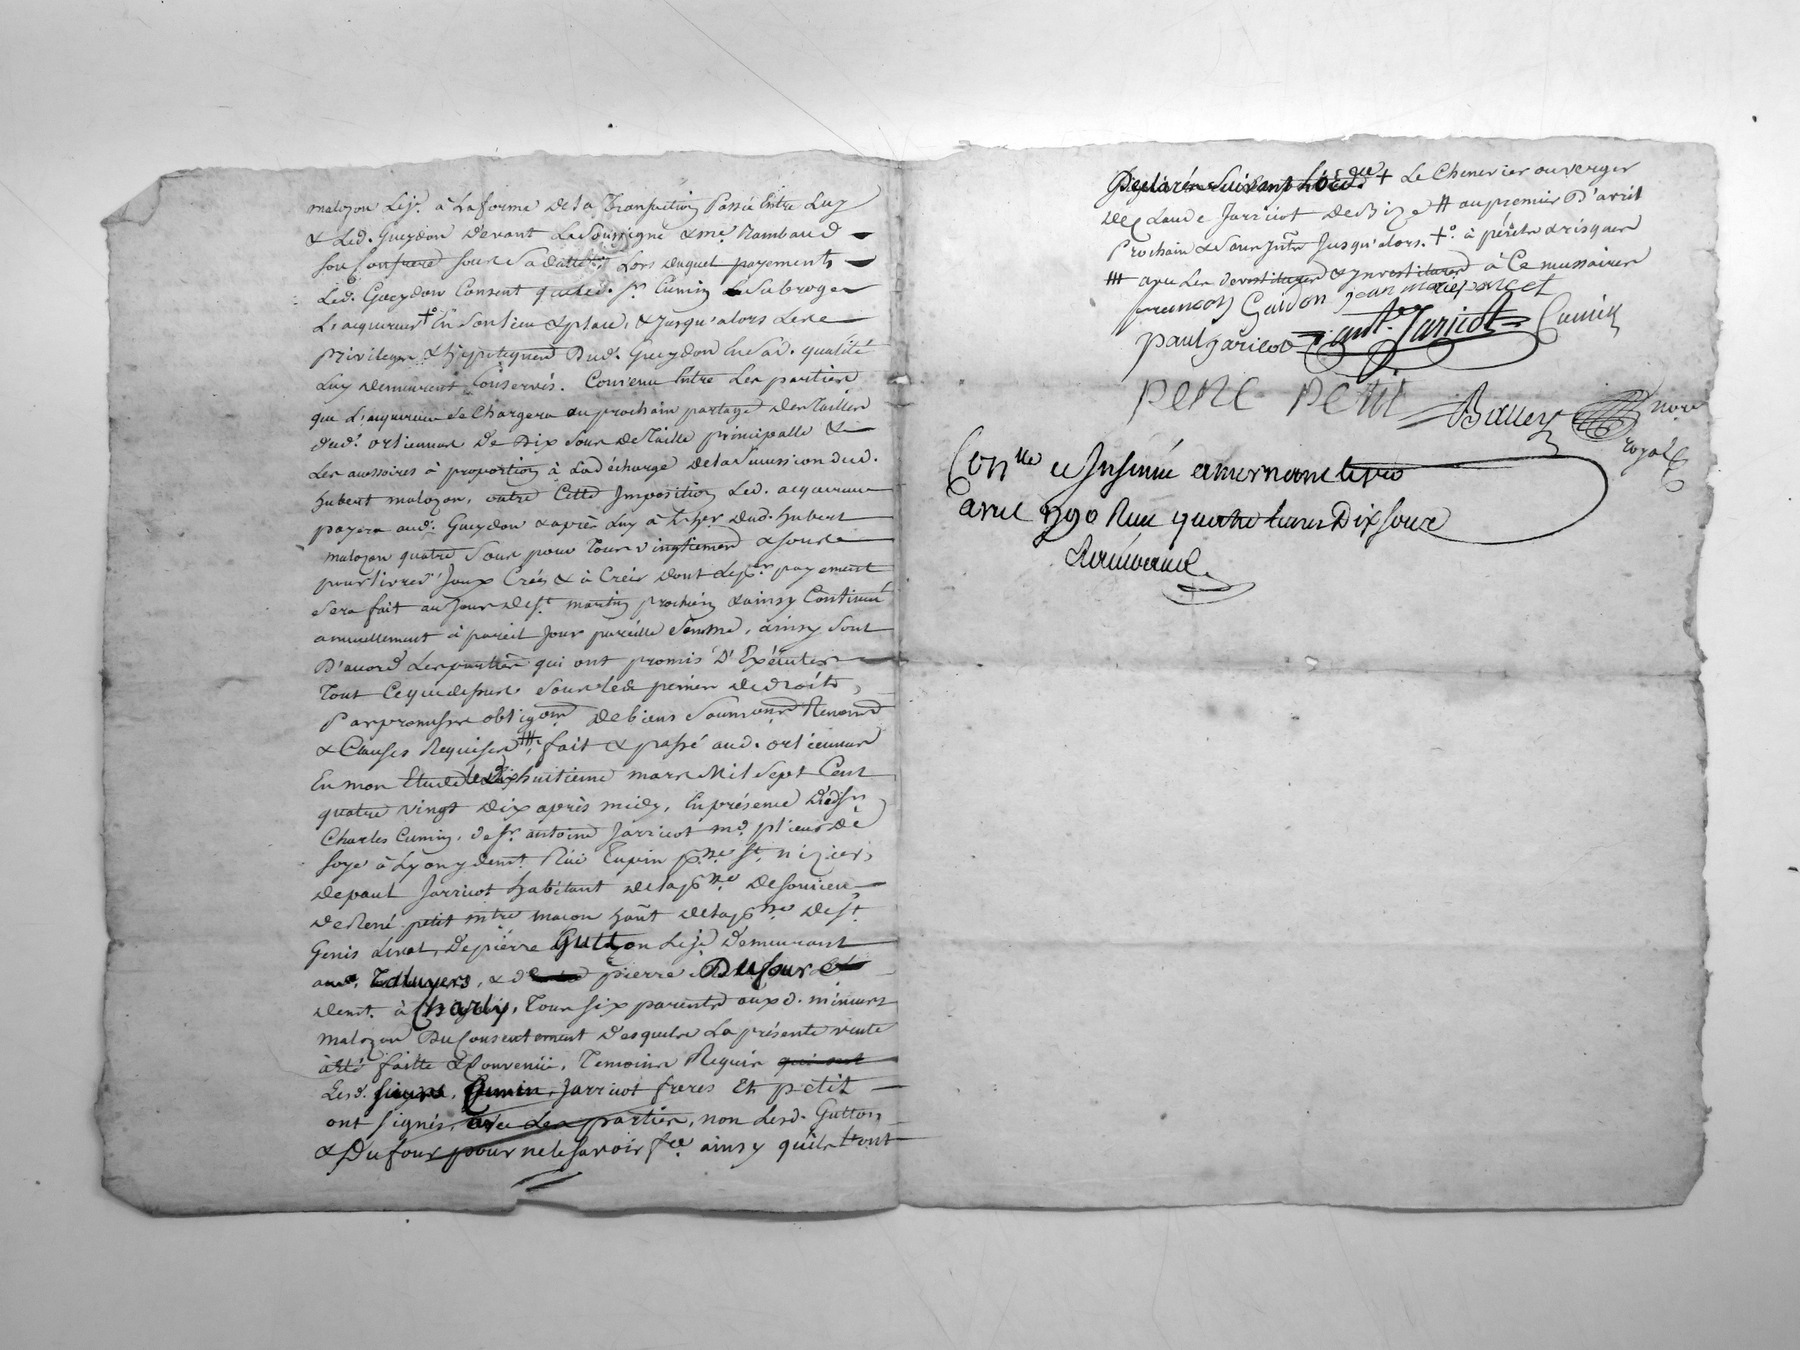 malozon Lej.e à La forme de la Transaction Passée Entre Luy
& Led. Gueydon devant Le Soussigné & me. Rambaud
son Confrere sous Sa datte, Lors duquel payement
Led. Gueydon Consent que led. Sr. Cumin Subroge
L'acquereur +° En Son lieu & place, & Jusqu'alors Les
Privileges & hypoteques Dud. Gueydon En Sad. qualité
Luy demeurent Conservés. Convenu Entre Les parties
que L'acquereur se Chargera au prochain partage des Tailles
dud. orlienas de Dix Sous de Taille principalle &
Les acessoires à proportion à La décharge de la
hubert malozon, outre Cette Imposition Led. acquereur
payera aud. Gueydon & après Luy à dud. hubert
malozon quatre Sous pour Tous vingtiemes & Sous
pour livres d'Iceux Créés & à Créer dont Le per. payement
Sera fait au Jour de St. martin prochain & ainsy Continué
annuellement à pareil Jour pareille Somme, ainsy Sont
D'accord Les parties qui ont promis D'Exécuter
Tout Ce que dessus Sous les peines de droits,
Par promesses obligaon. De biens Soumons. Renons.
& Clauses Requises ⧻ fait & passé aud. orlienas
En mon Etude le Dixhuitieme mars Mil Sept Cent
quatre vingt Dix après midy, En présence
Charles Cumin, de Sr. antoine Jarricot md. plieur de
Soye à Lyon y demt. Rüe Tupin psse St. nizier,
de paul Jarricot habitant de la psse de Soucieu
de René petit mtre macon hañt de la psse de St.
Genis Laval, de pierre Gutton Le je. demeurant
aud. Taluyers, & de pierre Dufour
demt. à Charly, Tous Six parents auxd. mineurs
malozon Du Consentement desquels La présente vente
à Eté faitte & Convenüe, Temoins Requis qui ont
Lesd. Cumin, Jarricot freres Et petit
ont Signés, avec Les parties, non Lesd. Gutton
& Dufour pour ne le Savoir fre. ainsy qu'ils L'ont
Déclarés Suivant + Le Chenevier ou verger
de Claude Jarricot # au premier D'avril
Prochain & Sans Intrs. Jusqu'alors. +° à périls & risques
⧻ avec Les devestitures & Investitures à Ce necessaires
francois Guidon jean marie poncet
paul jaricot ant. Jaricot Cumin
REnE PEtit Balley nore
royal
Conlle et Insinué a mornant le
avril 1790 Reçu quatre livres Dix Sous
Rambaud